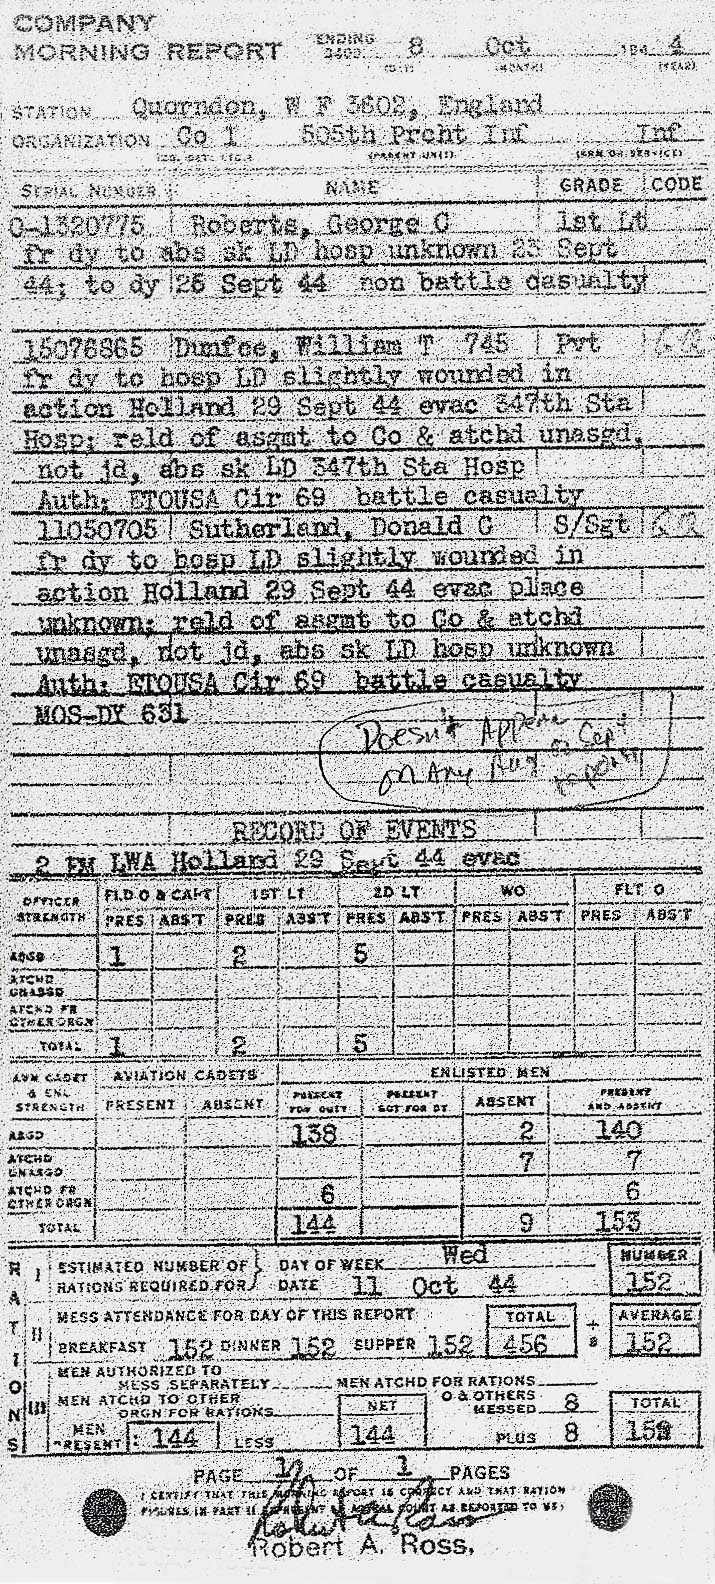 COMPANY
MORNING REPORT ENDING 2400 8 Oct 194 4
(DAY) (MONTH) (YEAR)
STATION Quorndon, W F 3602, England
ORGANIZATION Co I 505th Prcht Inf Inf
(CO. DET. ETC.) (PARENT UNIT) (ARM OR SERVICE)
SERIAL NUMBER NAME GRADE CODE
O-1320775 Roberts, George C 1st Lt
fr dy to abs sk LD hosp unknown 23 Sept
44; to dy 26 Sept 44 non battle casualty
15076865 Dunfee, William T 745 Pvt
fr dy to hosp LD slightly wounded in
action Holland 29 Sept 44 evac 347th Sta
Hosp; reld of asgmt to Co & atchd unasgd,
not jd, abs sk LD 347th Sta Hosp
Auth: ETOUSA Cir 69 battle casualty
11050705 Sutherland, Donald C S/Sgt
fr dy to hosp LD slightly wounded in
action Holland 29 Sept 44 evac place
unknown; reld of asgmt to Co & atchd
unasgd, not jd, abs sk LD hosp unknown
Auth: ETOUSA Cir 69 battle casualty
MOS-DY 631
Doesn't Appear
on Any Aug or Sept
reports
RECORD OF EVENTS
2 EM LWA Holland 29 Sept 44 evac
OFFICER STRENGTH FLD O & CAPT 1ST LT 2D LT WO FLT O
PRES ABS'T PRES ABS'T PRES ABS'T PRES ABS'T PRES ABS'T
ASGD 1 2 5
ATCHD UNASGD
ATCHD FR OTHER ORGN
TOTAL 1 2 5
AVN CADET & ENL STRENGTH AVIATION CADETS ENLISTED MEN
PRESENT ABSENT PRESENT FOR DUTY PRESENT NOT FOR DY ABSENT PRESENT AND ABSENT
ASGD 138 2 140
ATCHD UNASGD 7 7
ATCHD FR OTHER ORGN 6 6
TOTAL 144 9 153
RATIONS
I ESTIMATED NUMBER OF DAY OF WEEK Wed NUMBER
RATIONS REQUIRED FOR DATE 11 Oct 44 152
II MESS ATTENDANCE FOR DAY OF THIS REPORT TOTAL ÷ 3 AVERAGE
BREAKFAST 152 DINNER 152 SUPPER 152 456 152
III MEN AUTHORIZED TO MESS SEPARATELY MEN ATCHD FOR RATIONS
MEN ATCHD TO OTHER ORGN FOR RATIONS NET O & OTHERS MESSED 8 TOTAL
MEN PRESENT: 144 LESS 144 PLUS 8 152
PAGE 1 OF 1 PAGES
I CERTIFY THAT THIS MORNING REPORT IS CORRECT AND THAT RATION
FIGURES IN PART II REPRESENT ACTUAL COUNT AS REPORTED TO ME:
Robert A. Ross
Robert A. Ross,